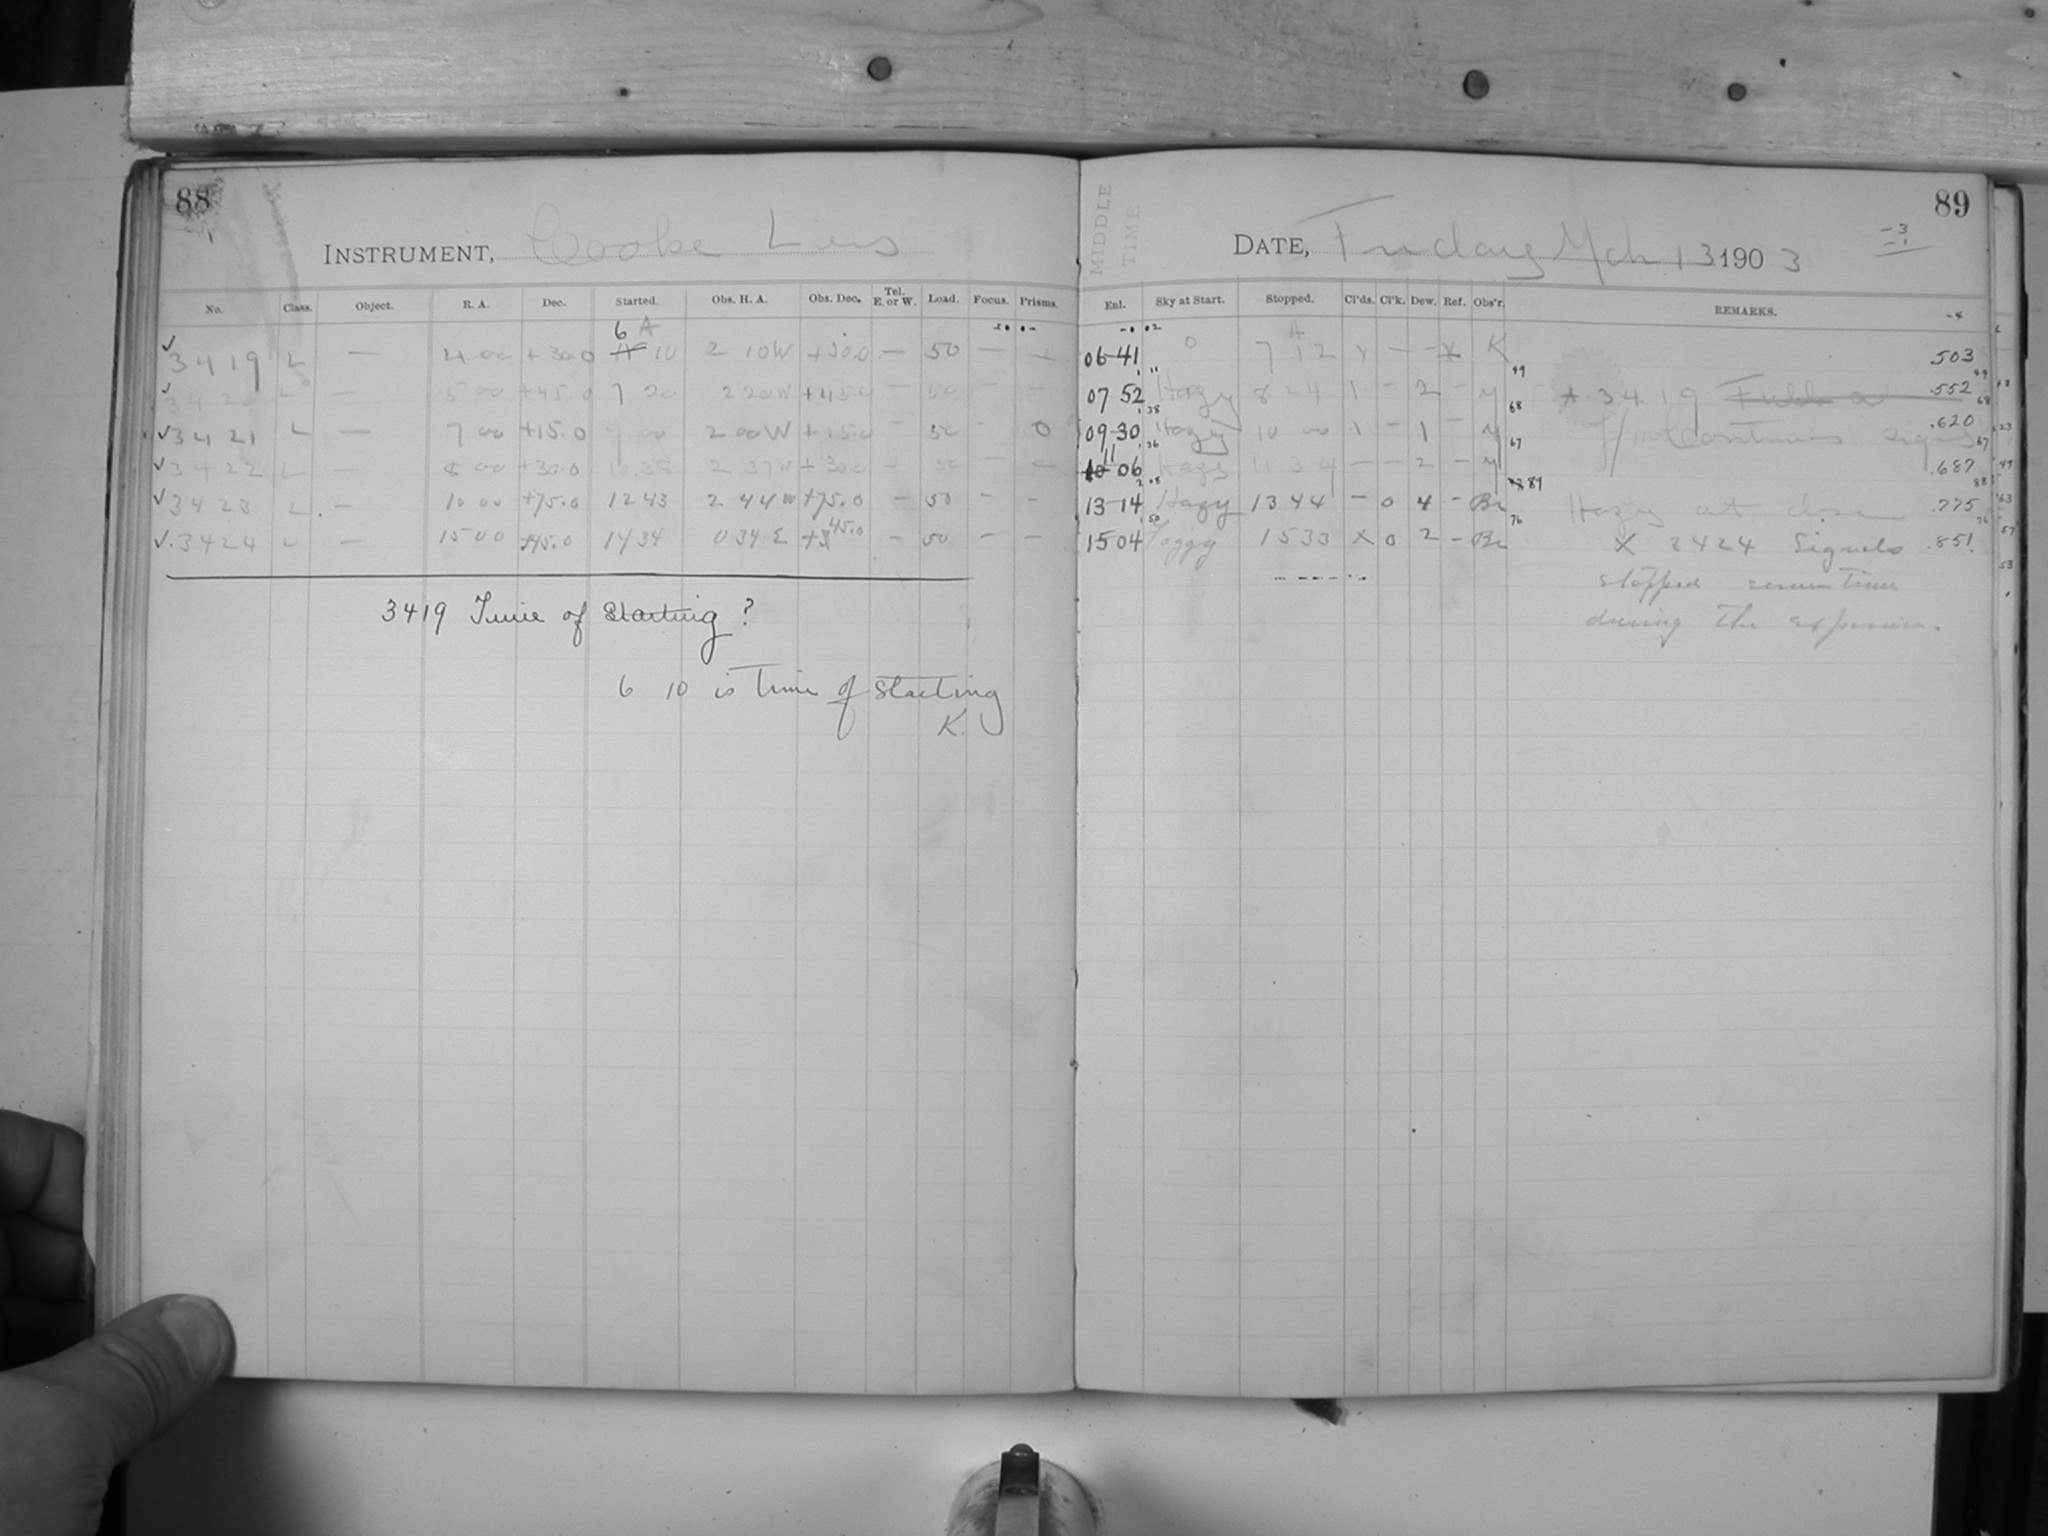 88
INSTRUMENT, Cooke Lens
No. Class. Object. R. A. Dec. Started. Obs. H. A. Obs. Dec. Tel. E. or W. Load. Focus. Prisms.
6 A
✓ 3419 L — 4 00 +30.0 10 2 10W +30.0 — 50 — —
✓ 3420 L — 5 00 +45.0 7 20 2 20W +45.0 — 50 — —
✓ 3421 L — 7 00 +15.0 9 00 2 00W +15.0 — 50 — 0
✓ 3422 L — 8 00 +30.0 10 38 2 37W +30.0 — 50 — —
✓ 3423 L . — 10 00 +75.0 12 43 2 44W +75.0 — 50 — —
✓ 3424 L — 15 00 +45.0 14 34 0 34 E 45.0 — 50 — —
3419 Time of Starting ?
6 10 is time of Starting
K.
MIDDLE TIME
89
DATE, Friday Mch 13 1903
-3
-1
Enl. Sky at Start. Stopped. Cl'ds. Cl'k. Dew. Ref. Obs'r. REMARKS.
06-41 0 7 12 x — — x K .503
07 52 Hazy 8 24 1 — 2 — M * 3419 .552
09-30 Hazy 10 00 1 — 1 — M Continuous signals .620
11 06 Hazy 11 34 — — 2 — M .687
13-14 Hazy 13 44 — 0 4 — Be Hazy at close .775
15 04 Foggy 15 33 X 0 2 — Be X 3424 Signals .851
stopped some time
during the exposure.